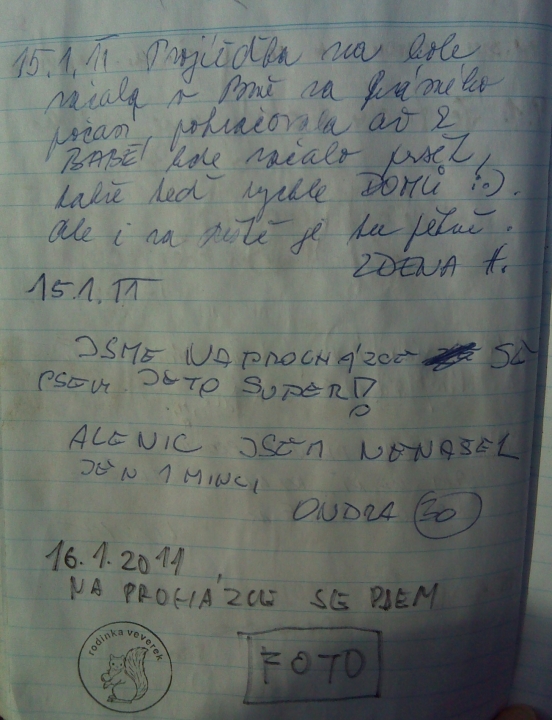 15.1.11 Projížďka na kole
začala v Brně za krásného
počasí, pokračovala až k
BABE! kde začalo pršet,
takže teď rychle DOMŮ :-).
Ale i za deště je tu pěkně.
ZDENA H.
15.1.11
JSME NA PROCHÁZCE SE
PSEM JETO SUPER!
ALENIC JSEM NENAŠEL
JEN 1 MINCI
ONDRA 30
16.1.2011
NA PROCHÁZCE SE PSEM
rodinka veverek
FOTO